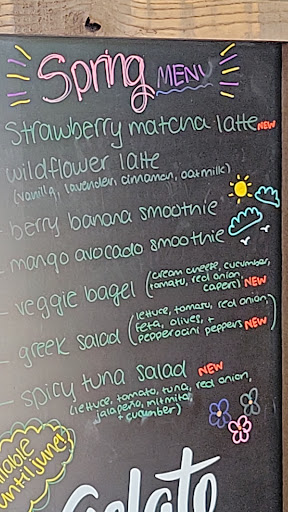 Spring MENU
Strawberry matcha latte NEW
wildflower latte
(vanilla, lavender, cinnamon, oatmilk)
- berry banana smoothie
- mango avocado smoothie
- veggie bagel (cream cheese, cucumber,
tomatu, red onion,
capers) NEW
- greek salad (lettuce, tomasu, red onion,
feta, olives, +
pepperocini peppers) NEW
- spicy tuna salad NEW
(lettuce, tomato, tuna, red onion,
jalapeño, mitmita,
+ cucumber)
ilable
until june!
Gelato